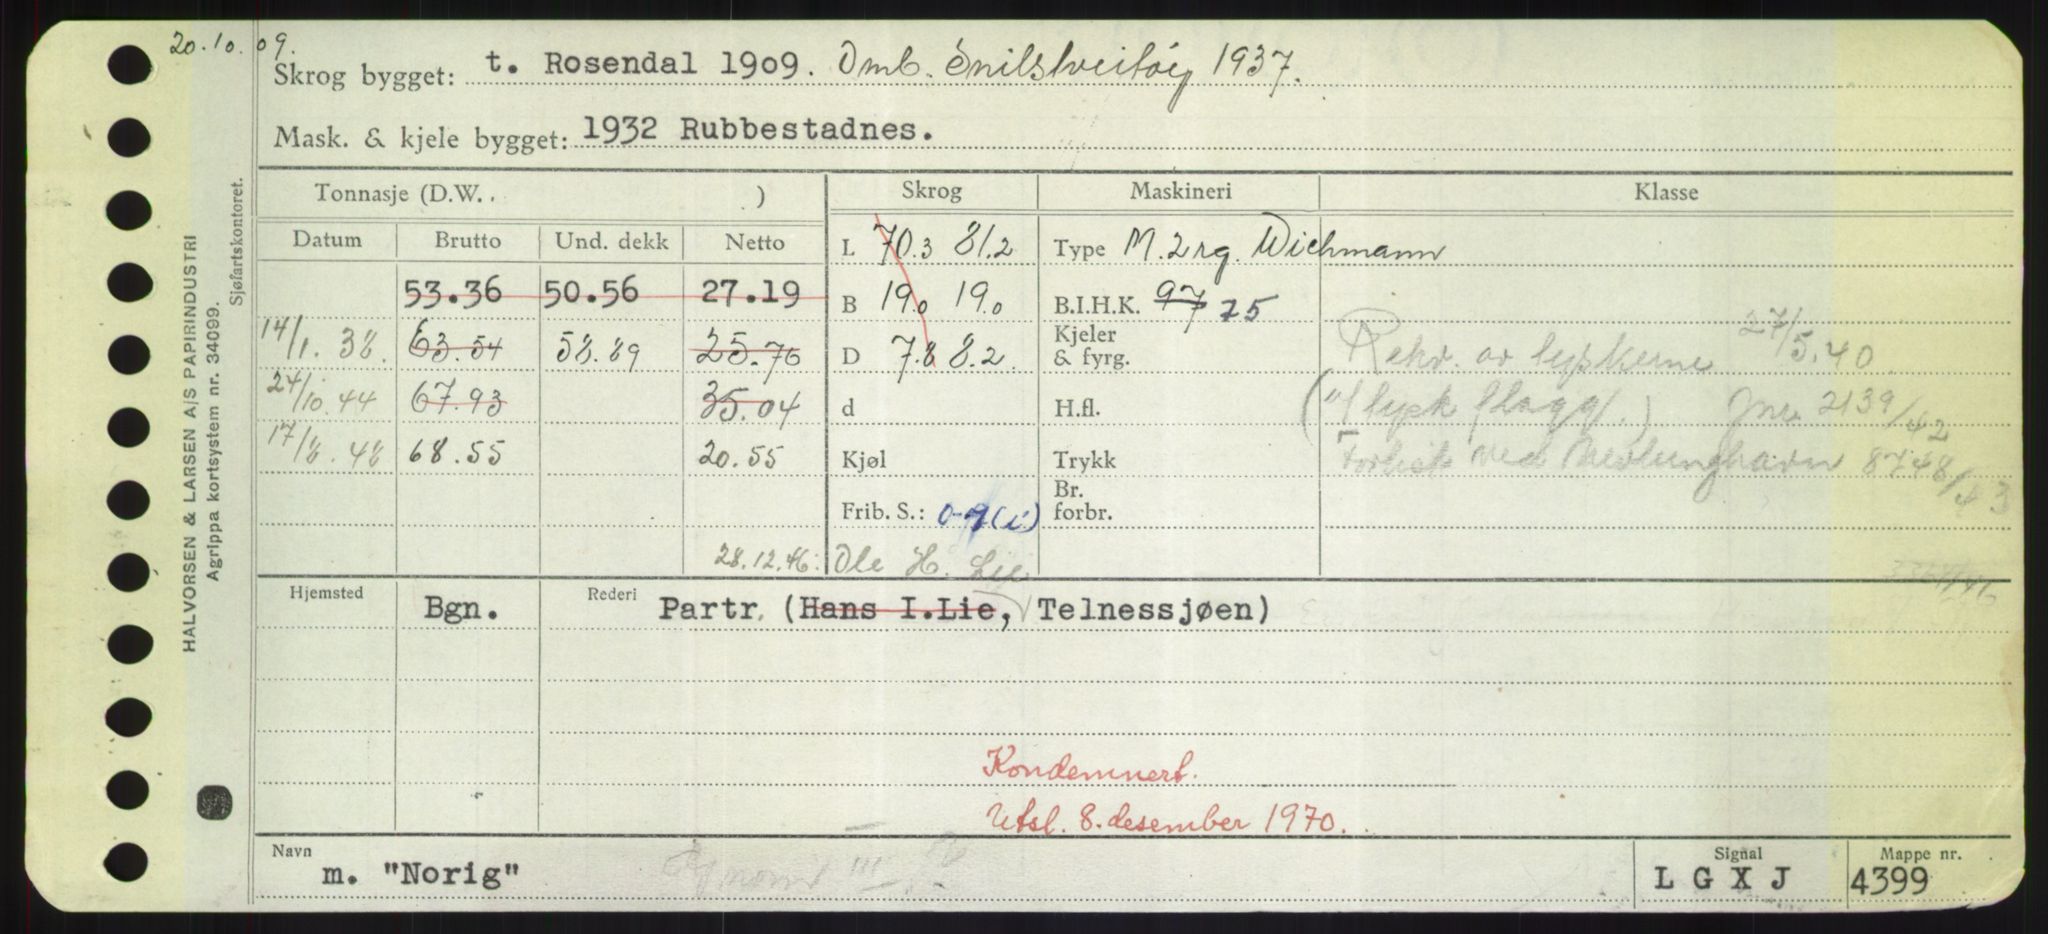 20.10.09.
Skrog bygget: t. Rosendal 1909. Omb. Snilstveitøy 1937.
Mask. & kjele bygget: 1932 Rubbestadnes.
HALVORSEN & LARSEN A/S PAPIRINDUSTRI
Agrippa kortsystem nr. 34099.
Sjøfartskontoret.
Tonnasje (D.W. ) Skrog Maskineri Klasse
Datum Brutto Und. dekk Netto L 70.3 81.2 Type M. 2 rg. Wichmann
53.36 50.56 27.19 B 19.0 19.0 B.I.H.K. 97 75
14/1. 38. 63.54 58.89 25.76 D 7.8 8.2 Kjeler & fyrg. Rekv. av tyskerne 27/5.40
24/10.44 67.93 35.04 d H.fl. (u/ tysk flagg.) Jnr. 2139/42
17/8.48 68.55 20.55 Kjøl Trykk Forlist ved 8748/43
Frib. S.: 0-9(i) Br. forbr.
28.12.46: Ole H. Lie
Hjemsted Bgn. Rederi Partr. (Hans I.Lie, Telnessjøen)
Kondemnert.
Utsl. 8. desember 1970.
Navn m. "Norig" Signal LGXJ Mappe nr. 4399